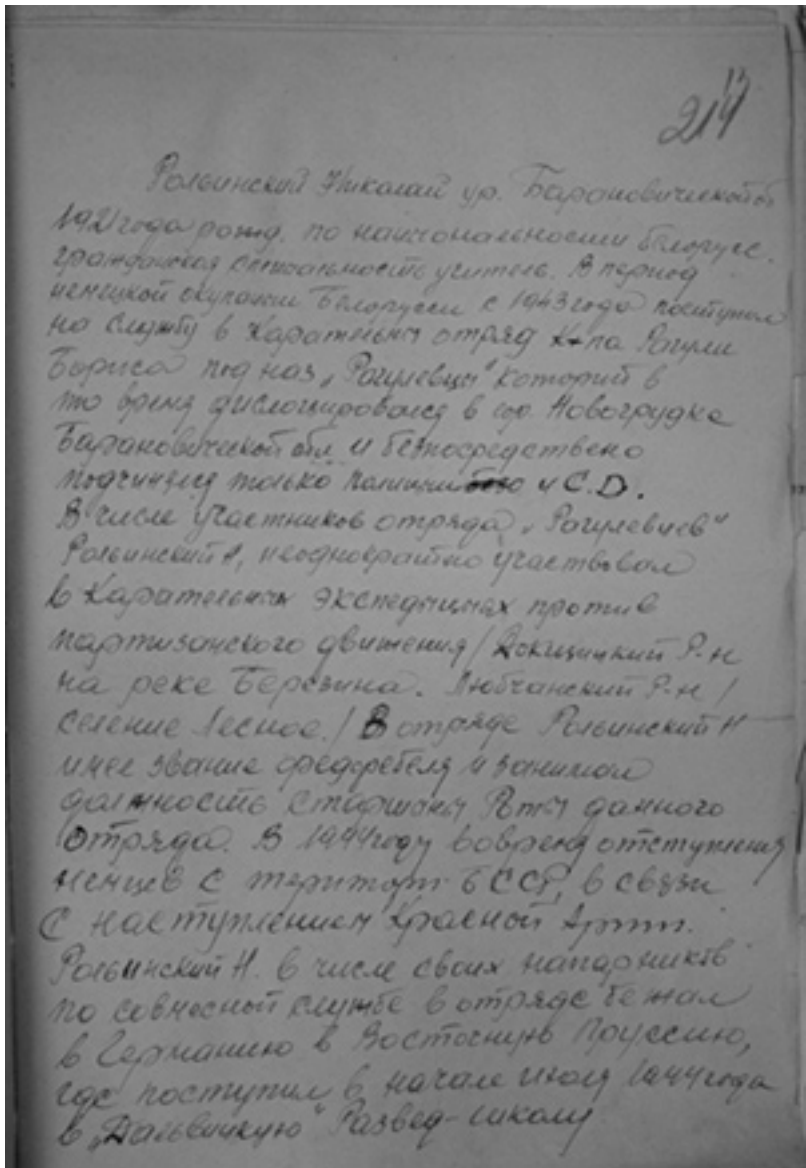 214
Рольинский Николай ур. Барановической об
1921 года рожд. по национальности белорусс.
гражданская специальность учитель. В период
немецкой окупации Белоруссии с 1943 года поступил
на службу в Карательны отряд К-па Рагули
Бориса под наз „Рагулевцы" который в
то время дислоцировался в гор. Новогрудке
Барановической обл. и безпосредствено
подчинялся только полиции и С.Д.
В числе участников отряда „Рагулевцев"
Рольинский Н, неоднократно участвовал
в Карательных экспедициях против
партизанского движения / Докшицкий Р-н
на реке Березина. Любчанский Р-н /
селение Лесное. / В отряде Рольинский Н
имел звание фредфебеля и занимал
должность старшины Роты данного
отряда. В 1944 году вовремя отступления
немцев с територ БССР, в связи
с наступлением Красной Арми.
Рольинский Н. в числе своих напарников
по совмесной службе в отряде бежал
в Германию в Восточную Пруссию,
где поступил в начале июля 1944 года
в „Дальвицкую" Развед-школу